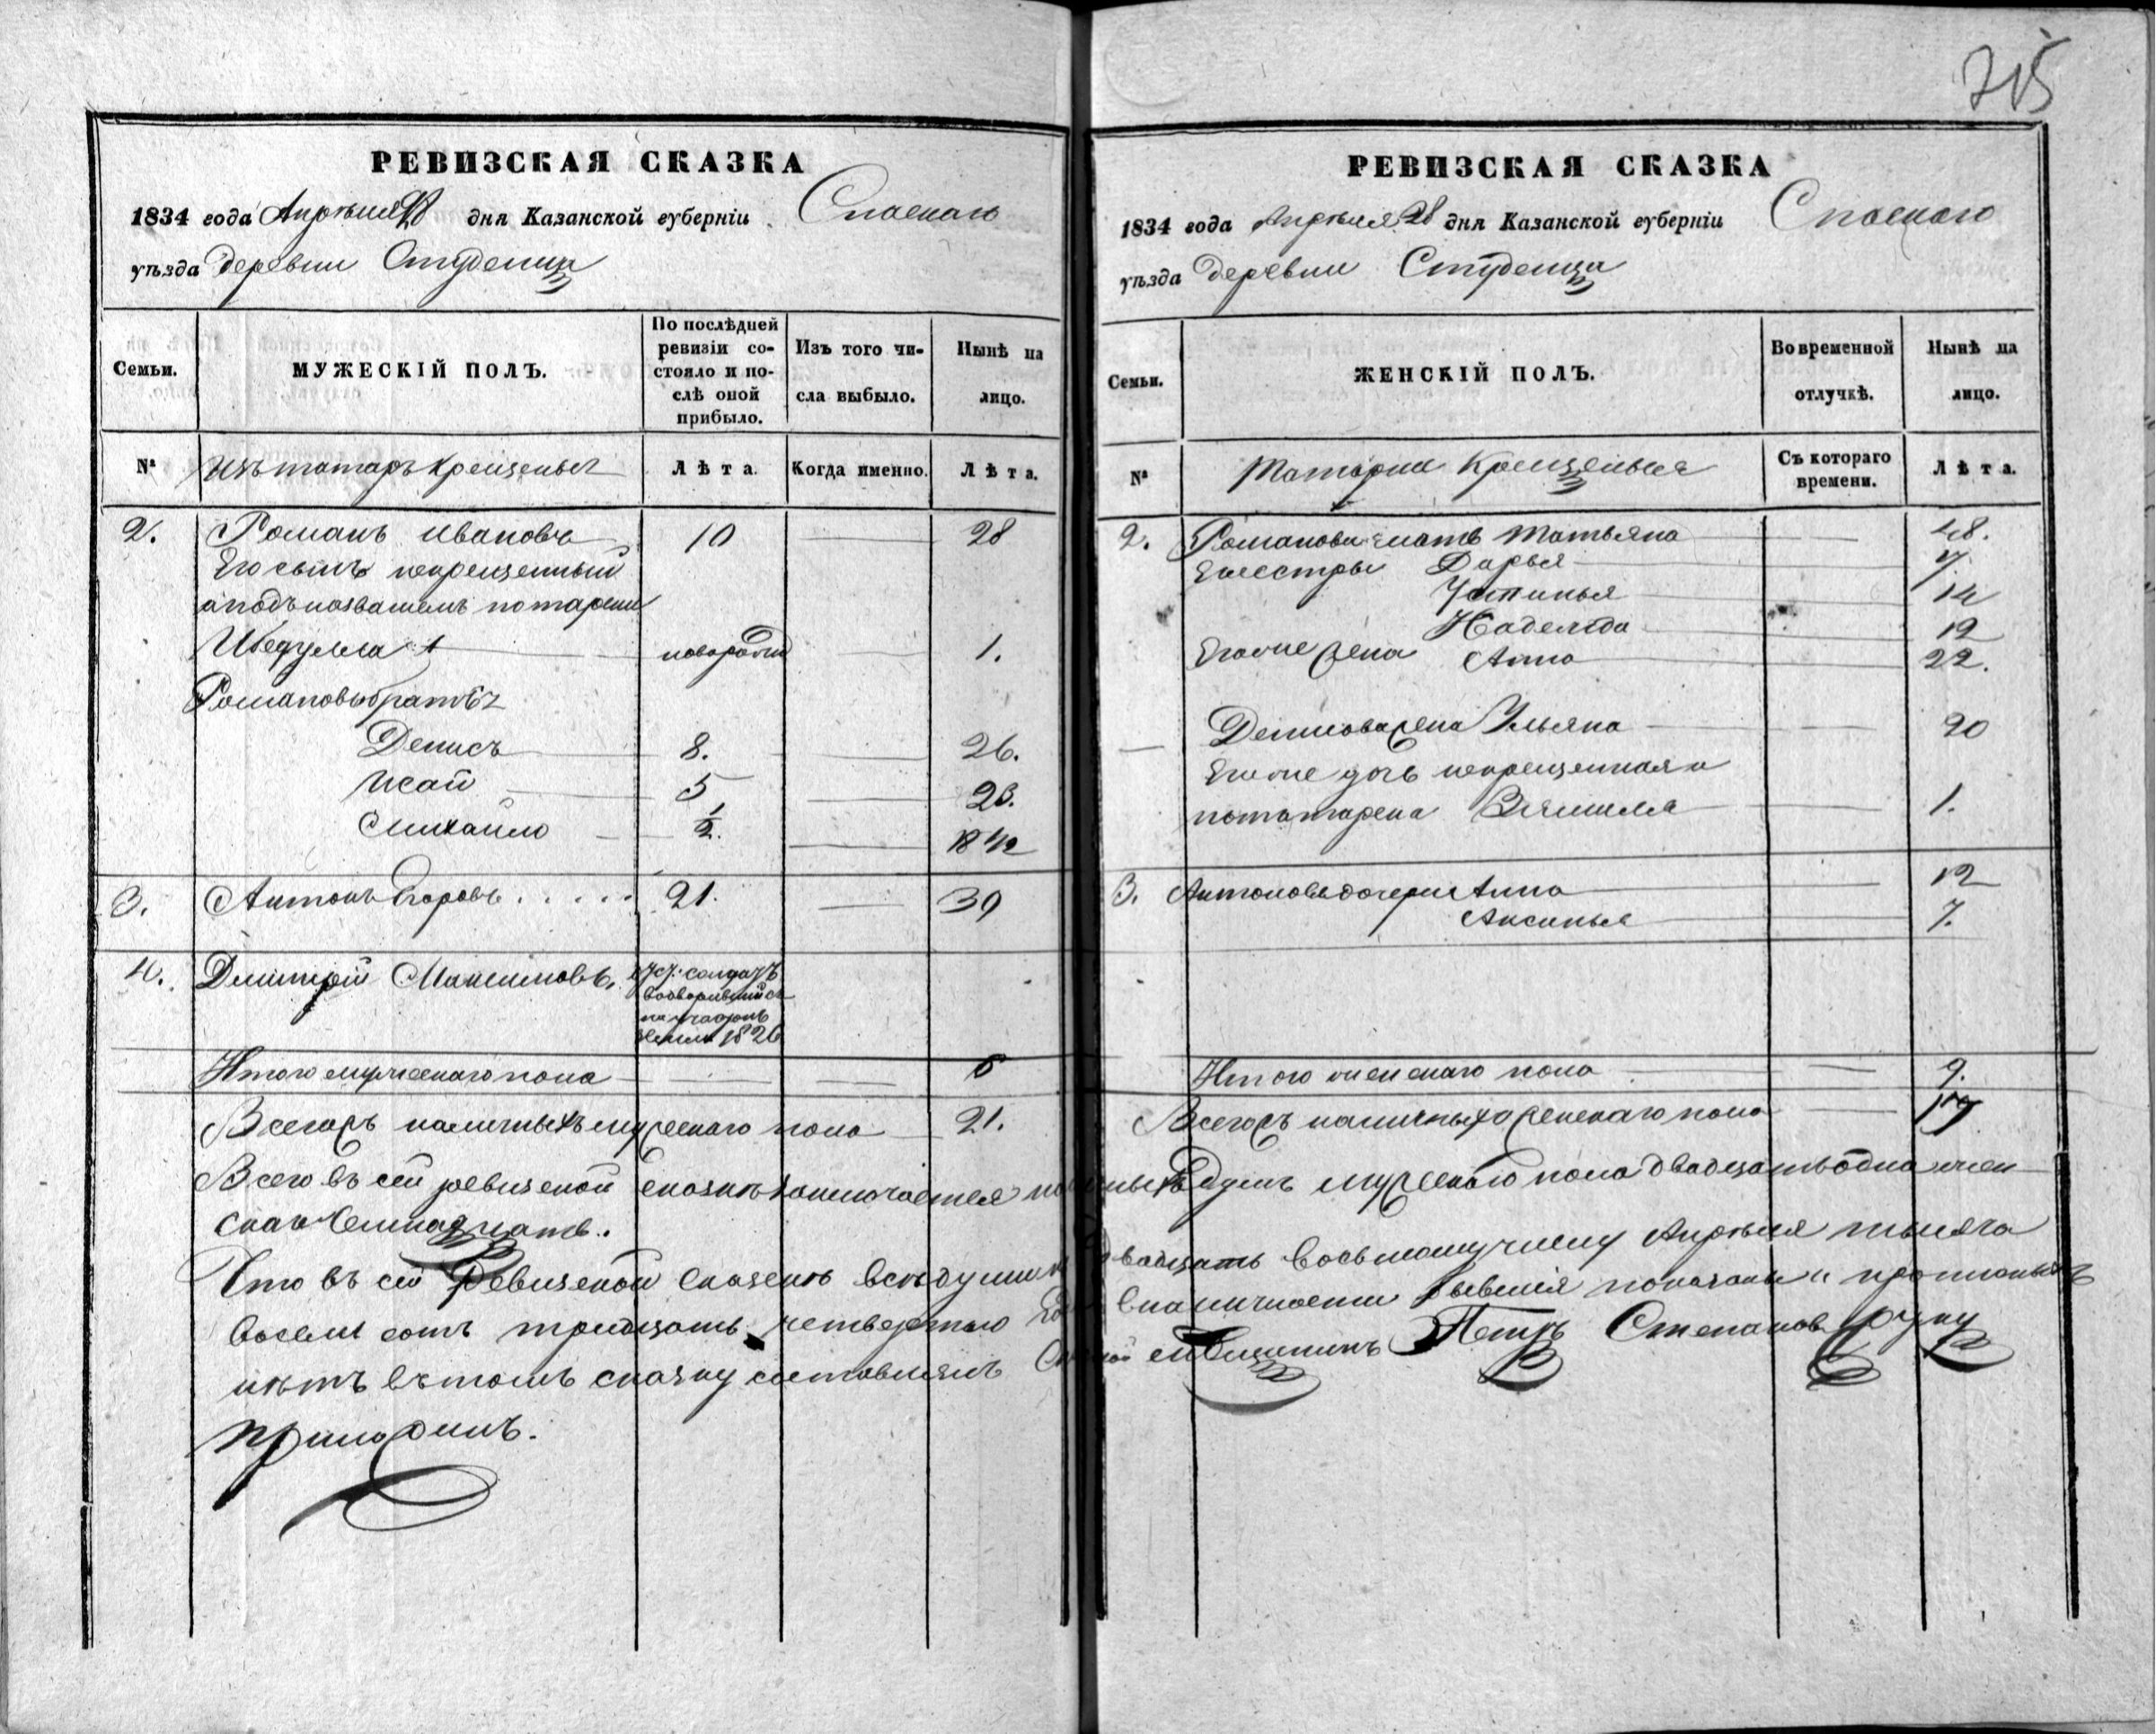 715
РЕВИЗСКАЯ СКАЗКА
1834 года Апрѣля 28 дня Казанской губерніи Спаскаго
уѣзда деревни Студенца
Семьи.
МУЖЕСКІЙ ПОЛЪ.
По послѣдней ревизіи состояло и послѣ оной прибыло.
Изъ того числа выбыло.
Нынѣ на лицо.
№
Изъ татаръ крещеныхъ
Лѣта.
Когда именно.
Лѣта.
2. Романъ Ивановъ 10 28
Его сынъ некрещенный
а подъ названіемъ по татарски
новорожд 1.
Романовы братья
Денисъ 8. 26.
Исай 5 23.
Михайло 1/2. 18 1/2
3. Антонъ Егоровъ . . . . . 21. 39
4. Дмитрій Максимовъ. солдатъ
1826
Итого мужескаго пола 6
Всегожъ наличныхъ мужескаго пола 21.
РЕВИЗСКАЯ СКАЗКА
1834 года Апрѣля 28 дня Казанской губерніи Спаскаго
уѣзда деревни Студенца
Семьи.
ЖЕНСКІЙ ПОЛЪ.
Во временной отлучкѣ.
Нынѣ на лицо.
№
Татарки крещеныя
Съ котораго времени.
Лѣта.
2. Романова мать Татьяна 48.
Его сестры Дарья 7.
Устинья 14
Надежда 19
Его же жена Анна 22.
Денисова жена Ульяна 20
Его же дочь некрещенная а
по татарски 1.
3. Антоновы дочери Анна 12
Аксинья 7.
Итого женскаго пола 9.
Всегожъ наличныхъ женскаго пола
Всего въ сей ревизской сказкѣ заключается наличныхъ душъ мужескаго пола двадцать одна жен
ска семнадцать.
Что въ сей Ревизской сказкѣ всѣ души къ двадцать восьмому числу Апрѣля тысяча
восемь сотъ тридцать четвертаго года въ наличности бывшія показаны и прописныхъ
нѣтъ въ томъ сказку составлялъ священникъ Петръ Степановъ руку
приложилъ.